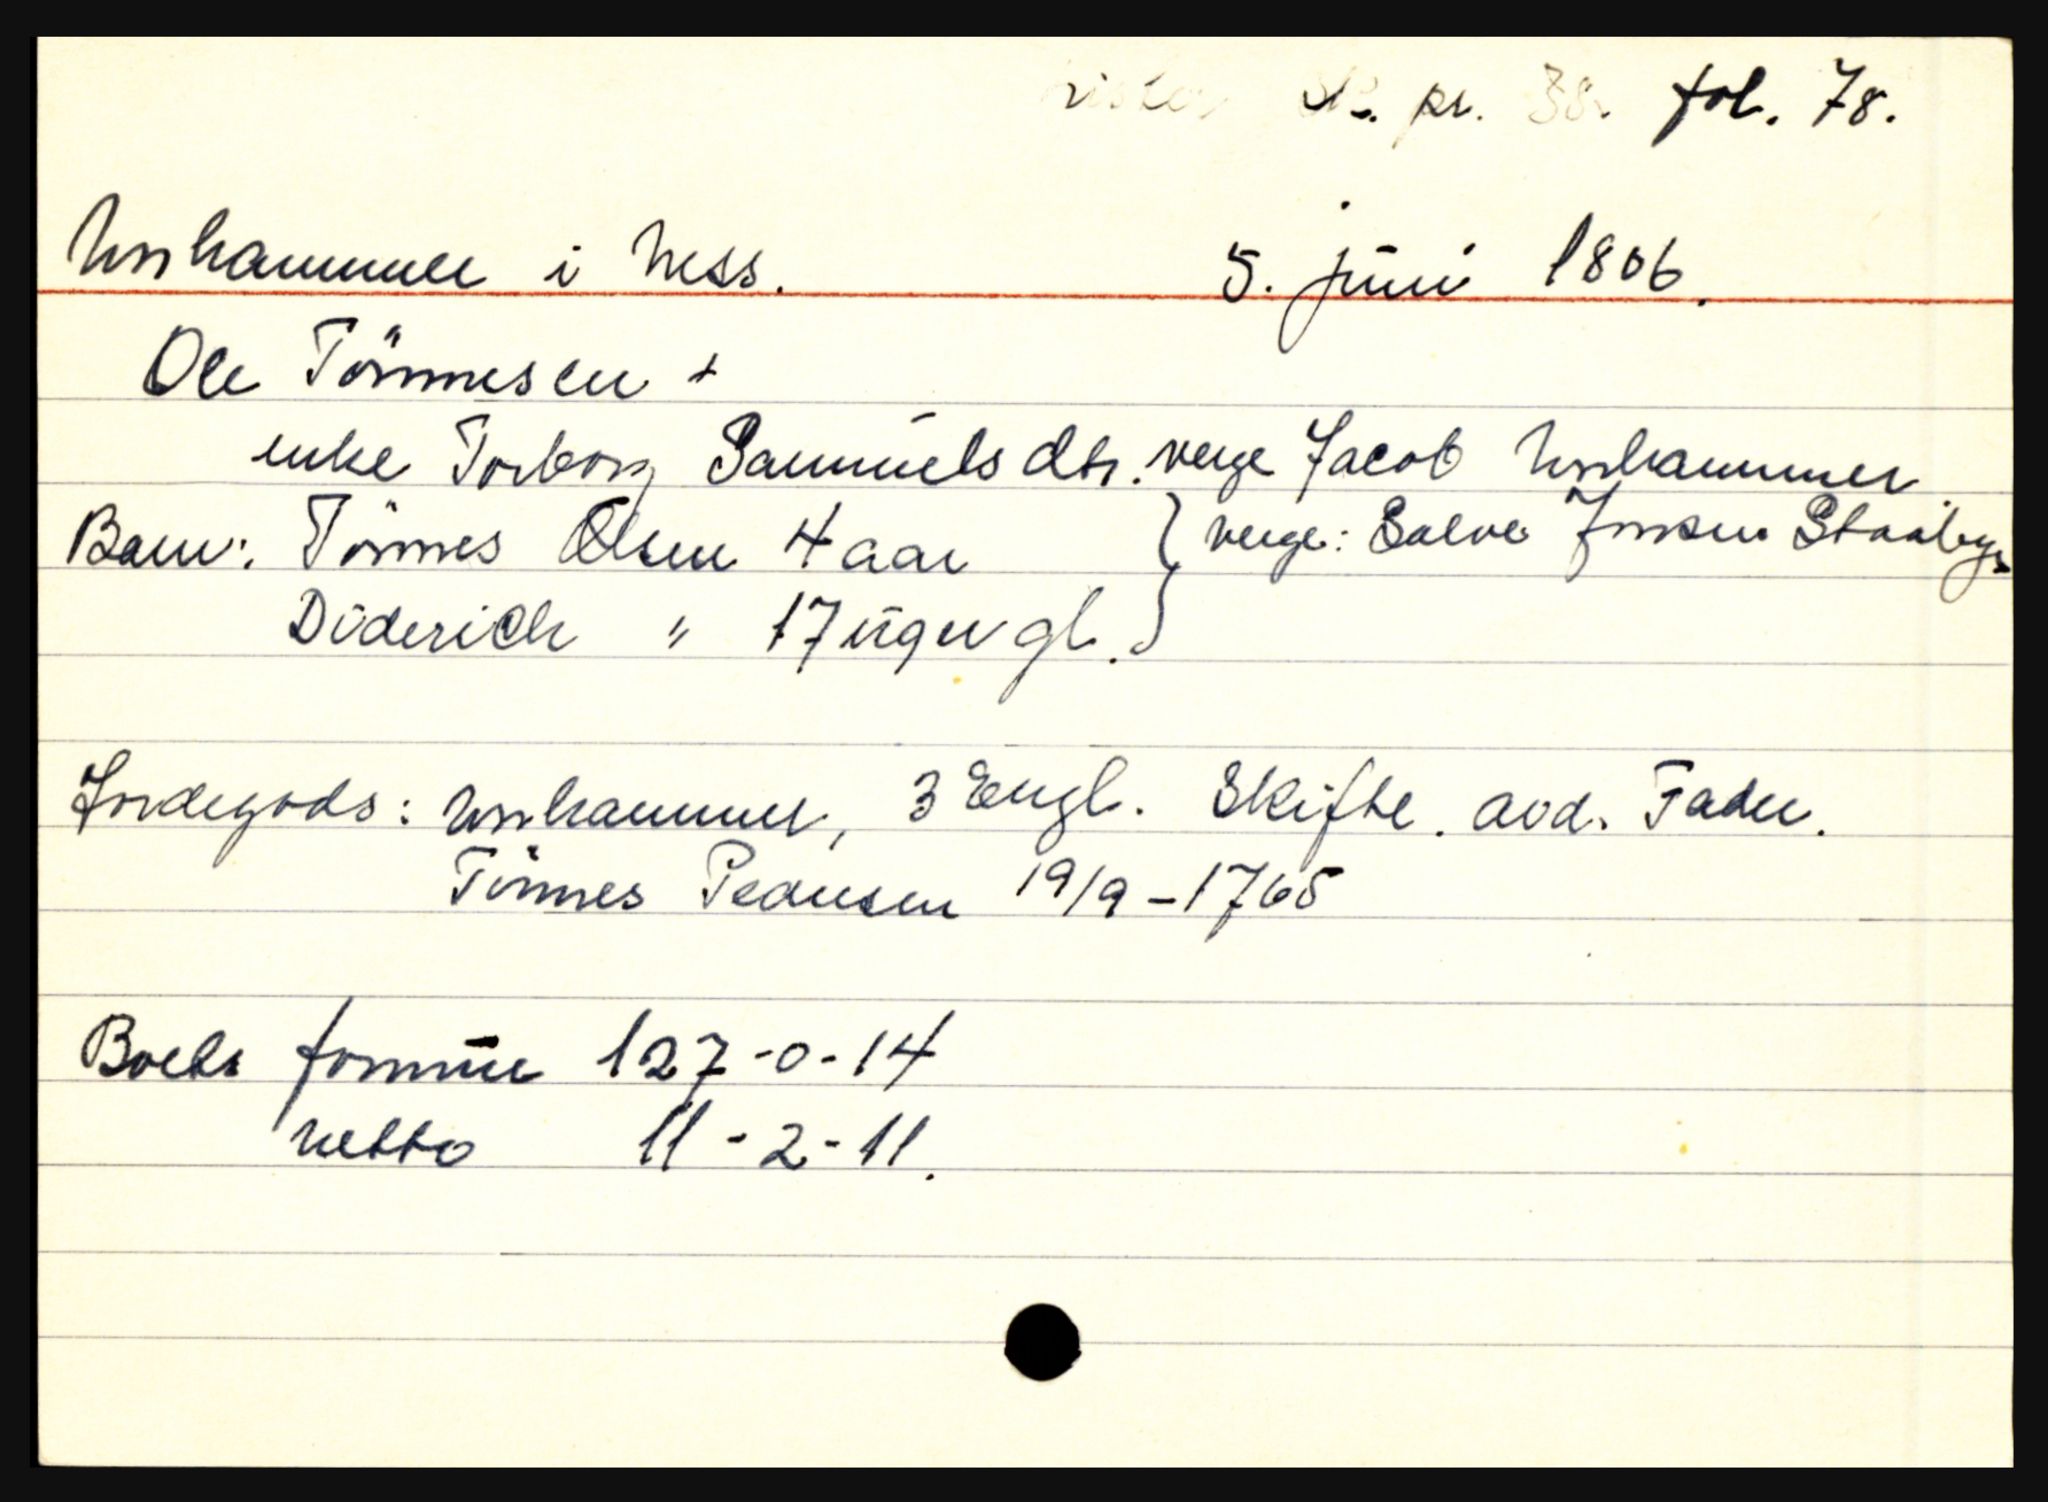 Lister Sk. pr. 38. fol. 78.
Urshammer i Ness. 5. juni 1806.
Ole Tönnesen +
enke Torborg Samuelsdtr. verge Jacob Urshammer
Barn: Tönnes Olsen 4 aar } verge: Salve Jonsen
Diderich " 17 uger gl. }
Jordegods: Urshammer, 3 Engl. Skifte. avd. Fader.
Tönnes Pedersen 19/9-1765
Boets formue 127-0-14
netto 11-2-11.